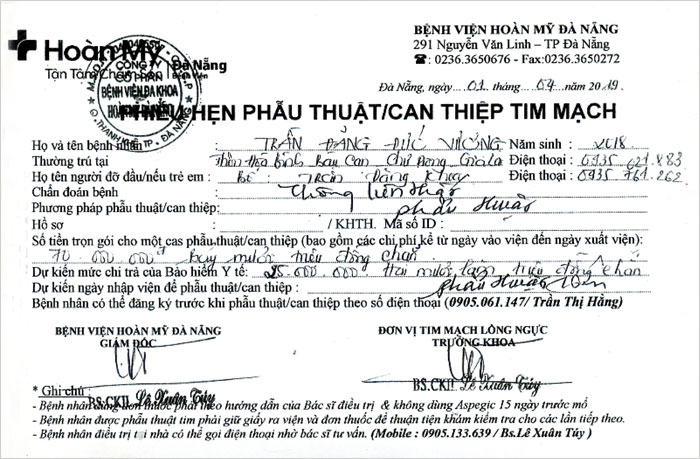 Hoàn Mỹ Đà Nẵng
Tận Tâm Chăm Sóc
CÔNG TY
CỔ PHẦN
BỆNH VIỆN ĐA KHOA
BỆNH VIỆN HOÀN MỸ ĐÀ NẴNG
291 Nguyễn Văn Linh – TP Đà Nẵng
☎: 0236.3650676 - Fax:0236.3650272
Đà Nẵng, ngày 01 tháng 04 năm 2019.
PHIẾU HẸN PHẪU THUẬT/CAN THIỆP TIM MẠCH
Họ và tên bệnh nhân : TRẦN ĐẶNG ĐỨC VƯỢNG Năm sinh : 2018
Thường trú tại : Chư Gia Lai Điện thoại : 0935.621.883
Họ tên người đỡ đầu/nếu trẻ em : Bố: Trần Đăng Điện thoại : 0935 761.262
Chẩn đoán bệnh : Thông liên thất
Phương pháp phẫu thuật/can thiệp: phẫu thuật
Hồ sơ : / KHTH. Mã số ID :
Số tiền trọn gói cho một cas phẫu thuật/can thiệp (bao gồm các chi phí kể từ ngày vào viện đến ngày xuất viện):
70.000.000đ Bảy mươi triệu đồng chẵn
Dự kiến mức chi trả của Bảo hiểm Y tế: 25.000.000. Hai mươi lăm triệu đồng chẵn
Dự kiến ngày nhập viện để phẫu thuật/can thiệp : phẫu thuật
Bệnh nhân có thể đăng ký trước khi phẫu thuật/can thiệp theo số điện thoại (0905.061.147/ Trần Thị Hằng)
BỆNH VIỆN HOÀN MỸ ĐÀ NẴNG
GIÁM ĐỐC
BS.CKII. Lê Xuân Túy
ĐƠN VỊ TIM MẠCH LỒNG NGỰC
TRƯỞNG KHOA
BS.CKII. Lê Xuân Túy
* Ghi chú :
- Bệnh nhân dùng đơn thuốc phải theo hướng dẫn của Bác sĩ điều trị & không dùng Aspegic 15 ngày trước mổ
- Bệnh nhân được phẫu thuật tim phải giữ giấy ra viện và đơn thuốc để thuận tiện khám kiểm tra cho các lần tiếp theo.
- Bệnh nhân điều trị tại nhà có thể gọi điện thoại nhờ bác sĩ tư vấn. (Mobile : 0905.133.639 / Bs.Lê Xuân Túy )